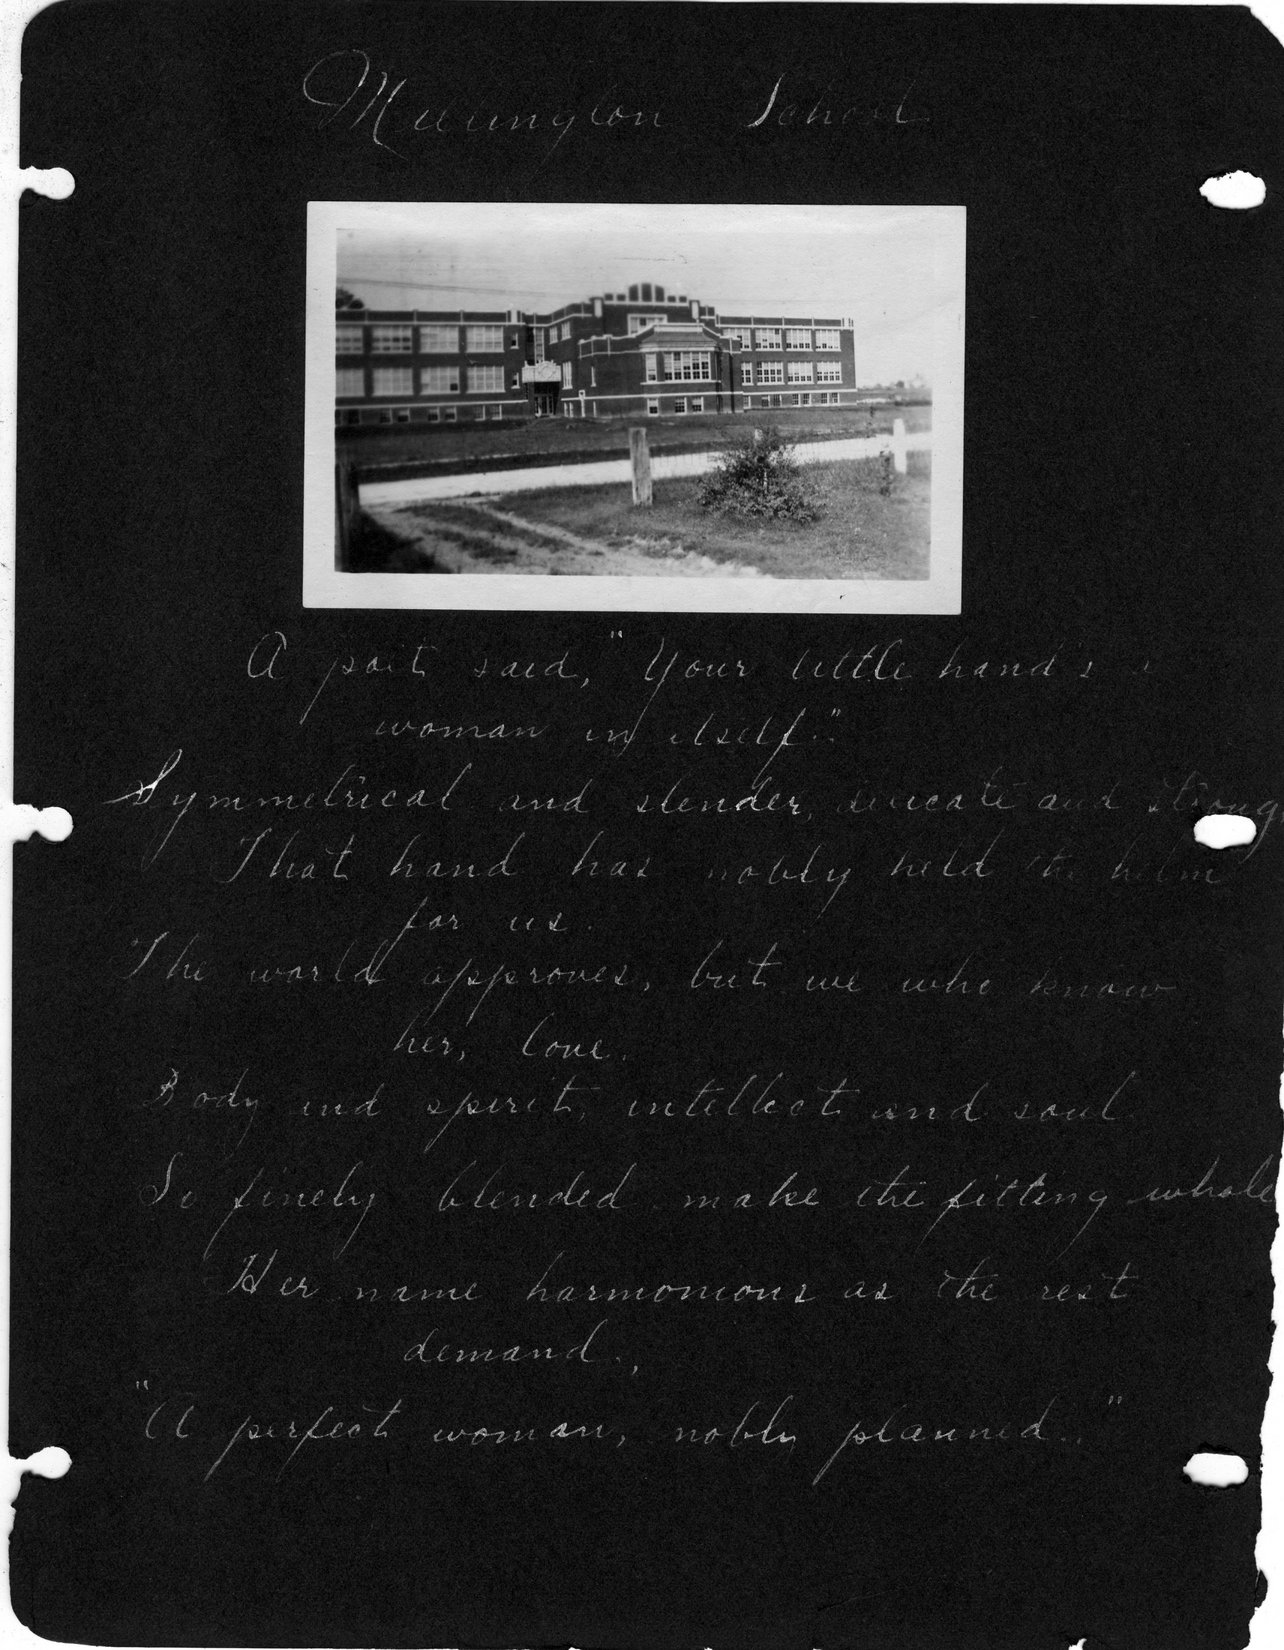 Millington School
A poet said, "Your little hand's a
woman in itself."
Symmetrical and slender, delicate and strong
That hand has nobly held the helm
for us.
The world approves, but we who know
her, love.
Body and spirit, intellect and soul
So finely blended make the fitting whole
Her name harmonious as the rest
demand.,
"A perfect woman, nobly planned."